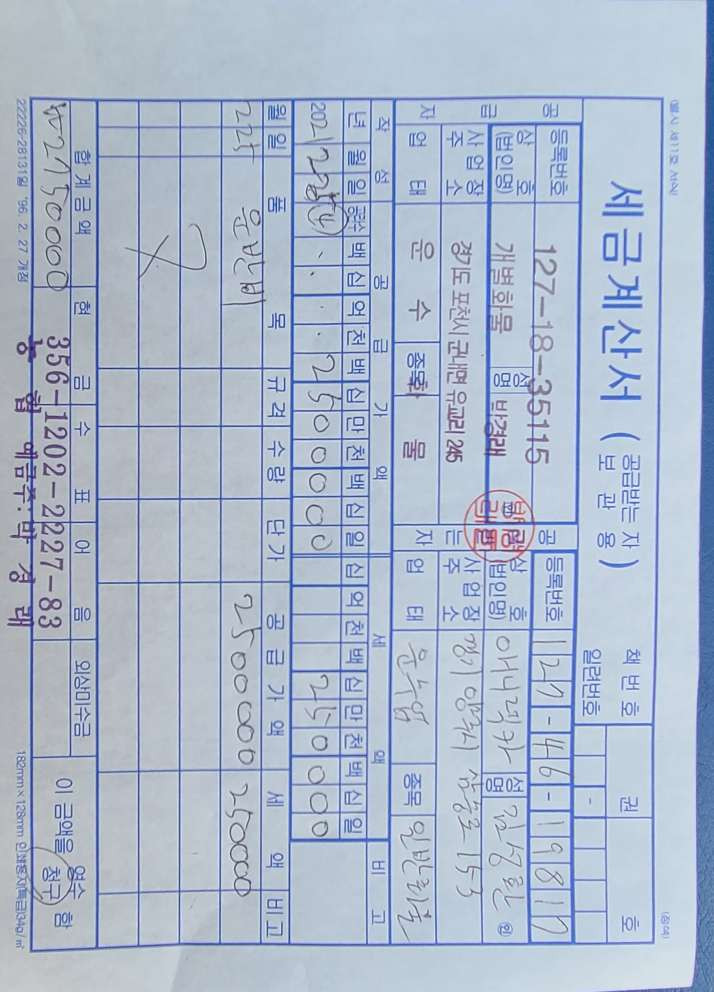 (별지 제11호 서식) (청색)
세금계산서 ( 공급받는자 보관용 ) 책번호 권 호
일련번호 -
공급자 등록번호 127-18-35115 공급받는자 등록번호 127-46-19817
상호(법인명) 개별화물 성명 박경래 상호(법인명) 애니럭카 성명 김성환 ㊞
사업장주소 경기도 포천시 군내면 유교리 245 사업장주소 경기 양주시 153
업태 운수 종목 화물 업태 운수업 종목 일반화물
작성 공급가액 세액 비고
년 월 일 공란수 백 십 억 천 백 십 만 천 백 십 일 십 억 천 백 십 만 천 백 십 일
2021 2 25 (4) 2500000 250000
월 일 품목 규격 수량 단가 공급가액 세액 비고
2 25 운반비 2500000 250000
합계금액 현금 수표 어음 외상미수금 이 금액을 영수 청구 함
₩2750000
356-1202-2227-83
농협 예금주:박경래
22226-28131일 '96. 2. 27 개정 182mm×128mm 인쇄용지(특급)34g/㎡